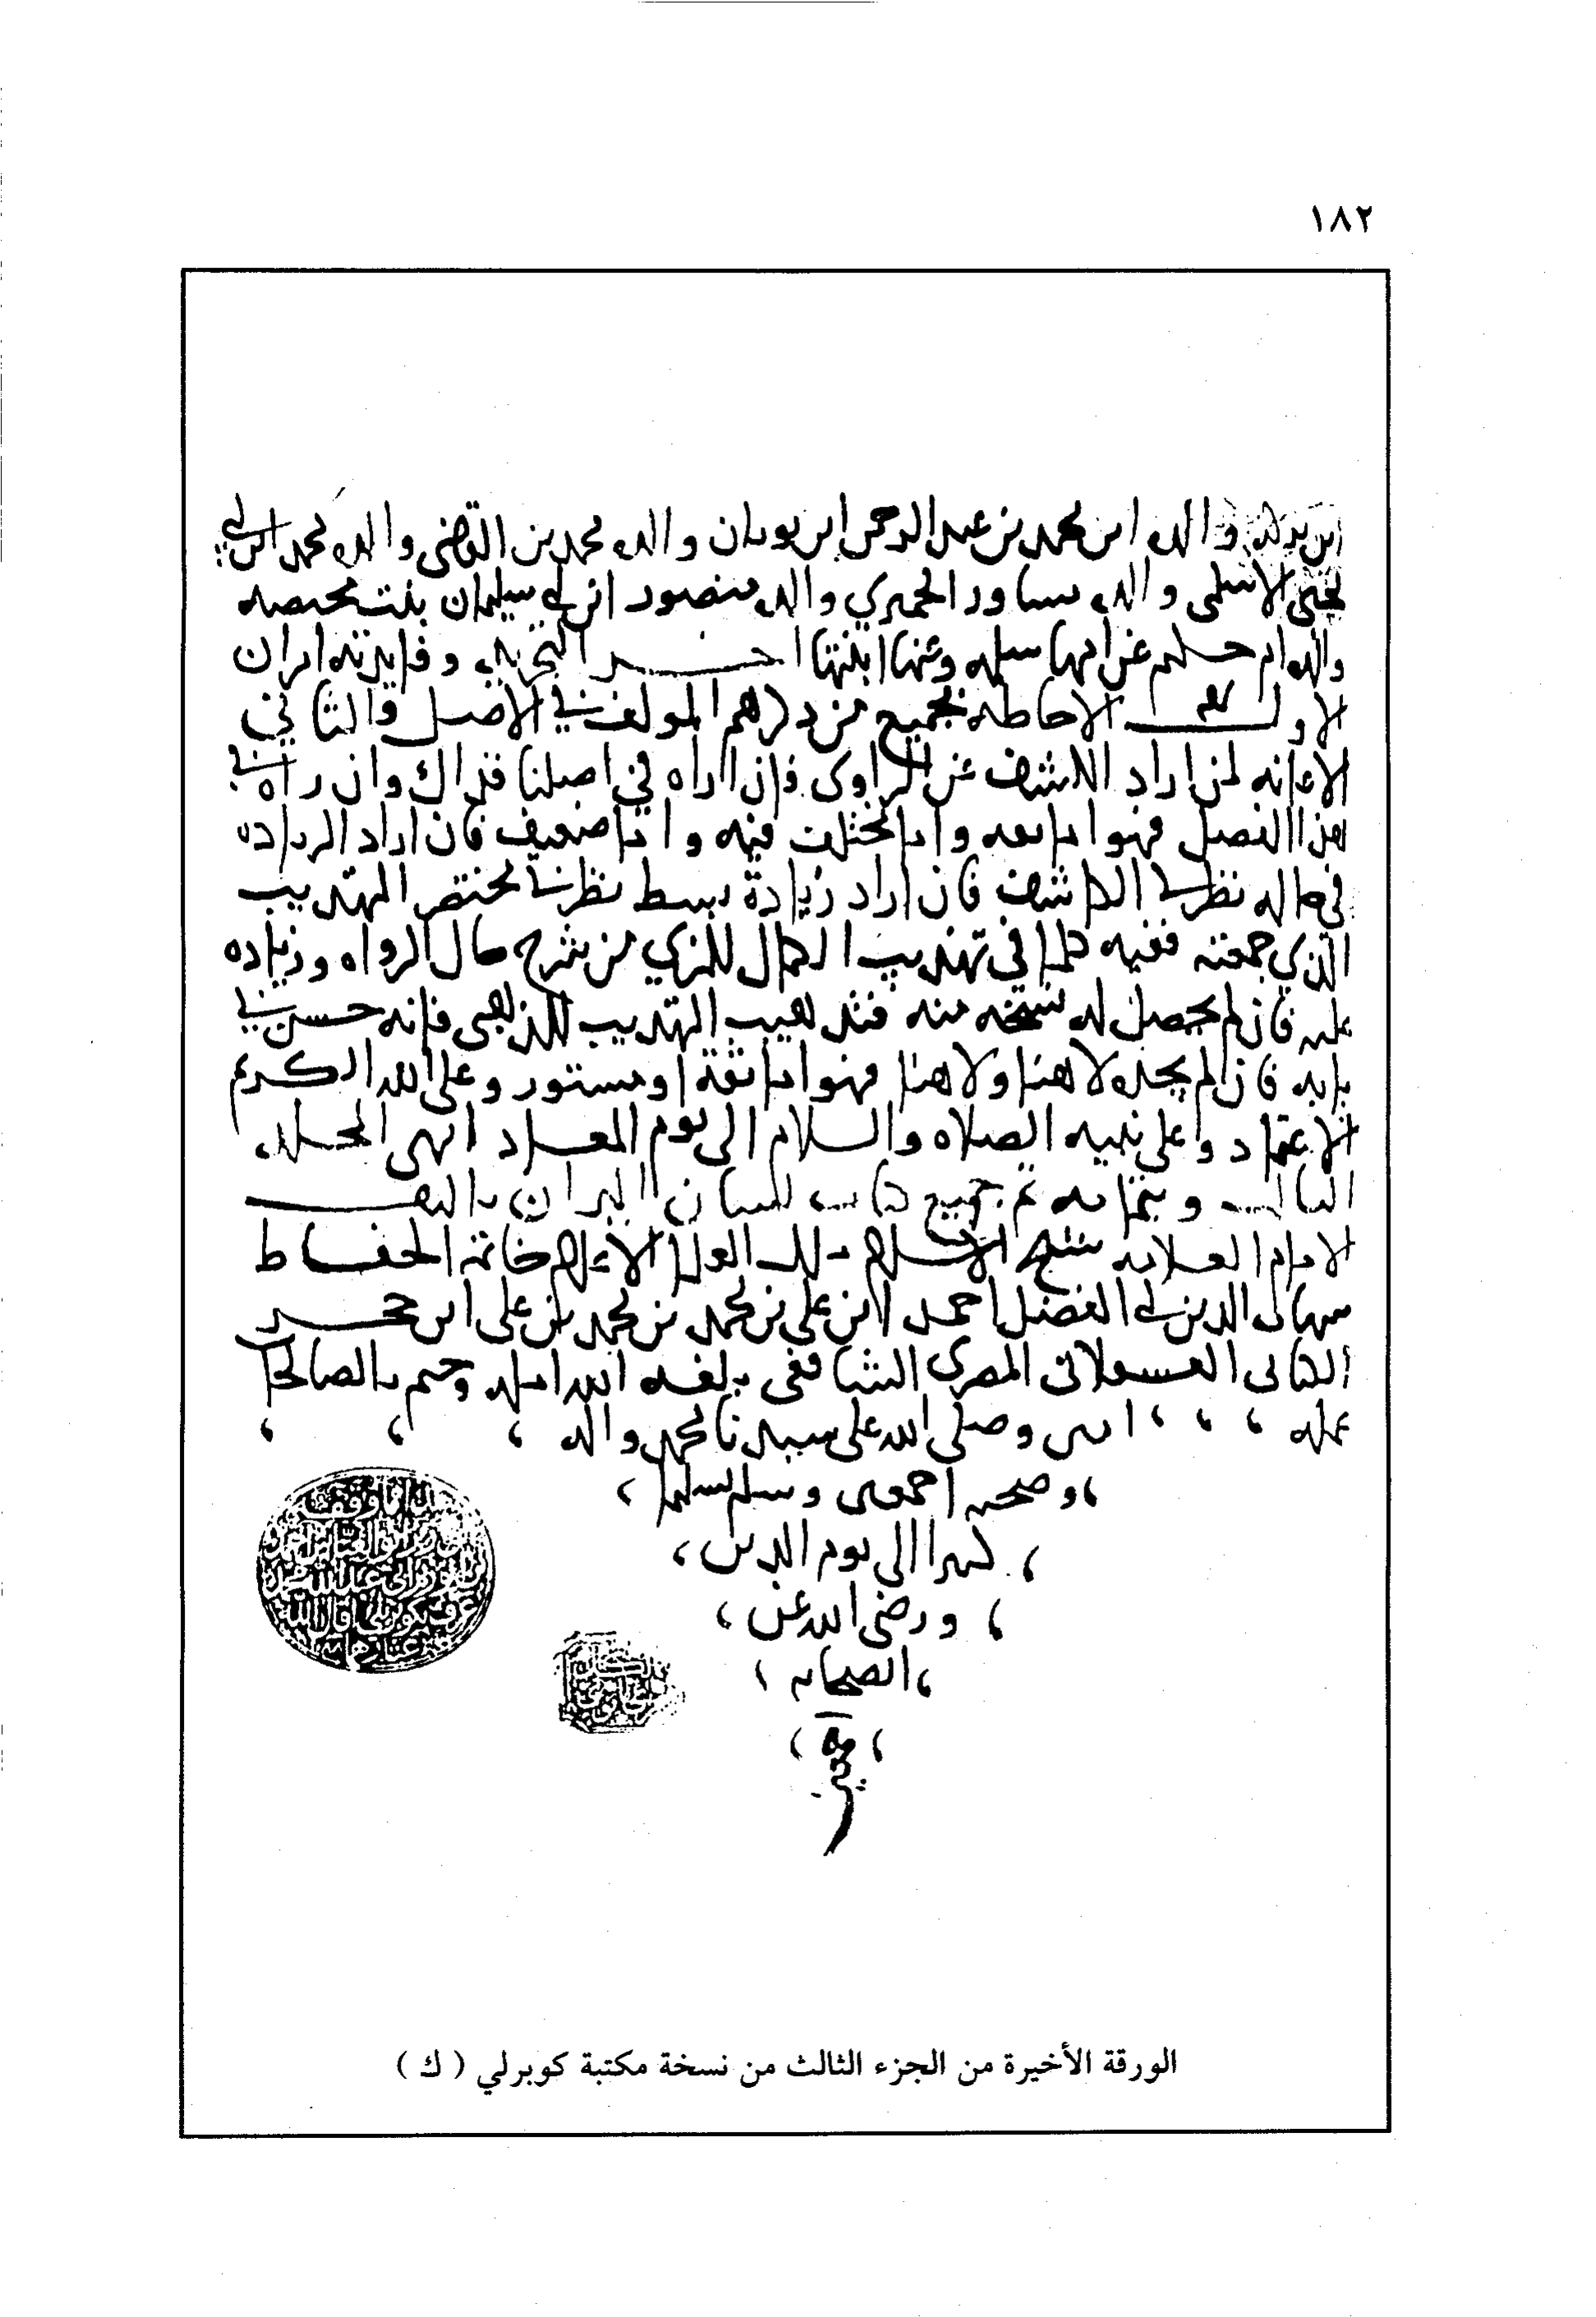 ١٨٢
والده ابن محمد بن عبد الرحمن ابن يوبان والده محمد بن القاضي والده محمد ابن ابي
يحيى الاسلمى والده مساور الحميري والده منصور ابن ابي سليمان بنت محيصه
والده ام حكيم عن امها سلمه وعنها ابنتها اخر التجريد وفايدته امران
الاول الاحاطه بجميع من ذكرهم المولف في الاصل والثاني
الاعانه لمن اراد الكشف عن الراوى فان اراه في اصلنا فذاك وان راه في
هذا الفصل فهو اما ثقه واما مختلف فيه واما ضعيف فان اراد الزياده
في حاله نظر في الكاشف فان اراد زيادة بسط نظر في مختصر التهذيب
الذي جمعته ففيه كلما في تهذيب الكمال للمزي من شرح حال الرواه وزياده
عليه فان لم يحصل له نسخه منه فتذهيب التهذيب للذهبي فانه حسن في
بابه فان لم يجده لا هنا ولا هنا فهو اما ثقة او مستور وعلى الله الكريم
الاعتماد وعلى نبيه الصلاه والسلام الى يوم المعاد انتهى المجلد
الثالث وبتمامه تم جميع كتاب لسان الميزان تاليف
الامام العلامه شيخ الاسلام ملك العلما الاعلام خاتمة الحفاظ
شهاب الدين ابي الفضل احمد ابن علي بن محمد بن محمد بن على ابن حجر
الكناني العسقلاني المصري الشافعى بلغه الله امله وختم بالصالحات
عمله امين وصلى الله على سيدنا محمد واله
وصحبه اجمعين وسلم تسليما
كثيرا الى يوم الدين
ورضى الله عن
الصحابه
الورقة الأخيرة من الجزء الثالث من نسخة مكتبة كوبرلي ( ك )